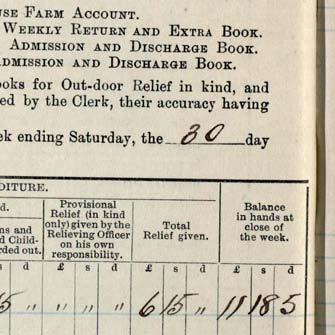 USE FARM ACCOUNT.
WEEKLY RETURN AND EXTRA BOOK.
ADMISSION AND DISCHARGE BOOK.
ADMISSION AND DISCHARGE BOOK.
ooks for Out-door Relief in kind, and
ed by the Clerk, their accuracy having
ek ending Saturday, the 30 day
DITURE.
d.
ns and
d Child-
rded out.
Provisional
Relief (in kind
only) given by the
Relieving Officer
on his own
responsibility.
Total
Relief given.
Balance
in hands at
close of
the week.
s d £ s d £ s d £ s d
15 " " " " 6 15 " 11 18 5